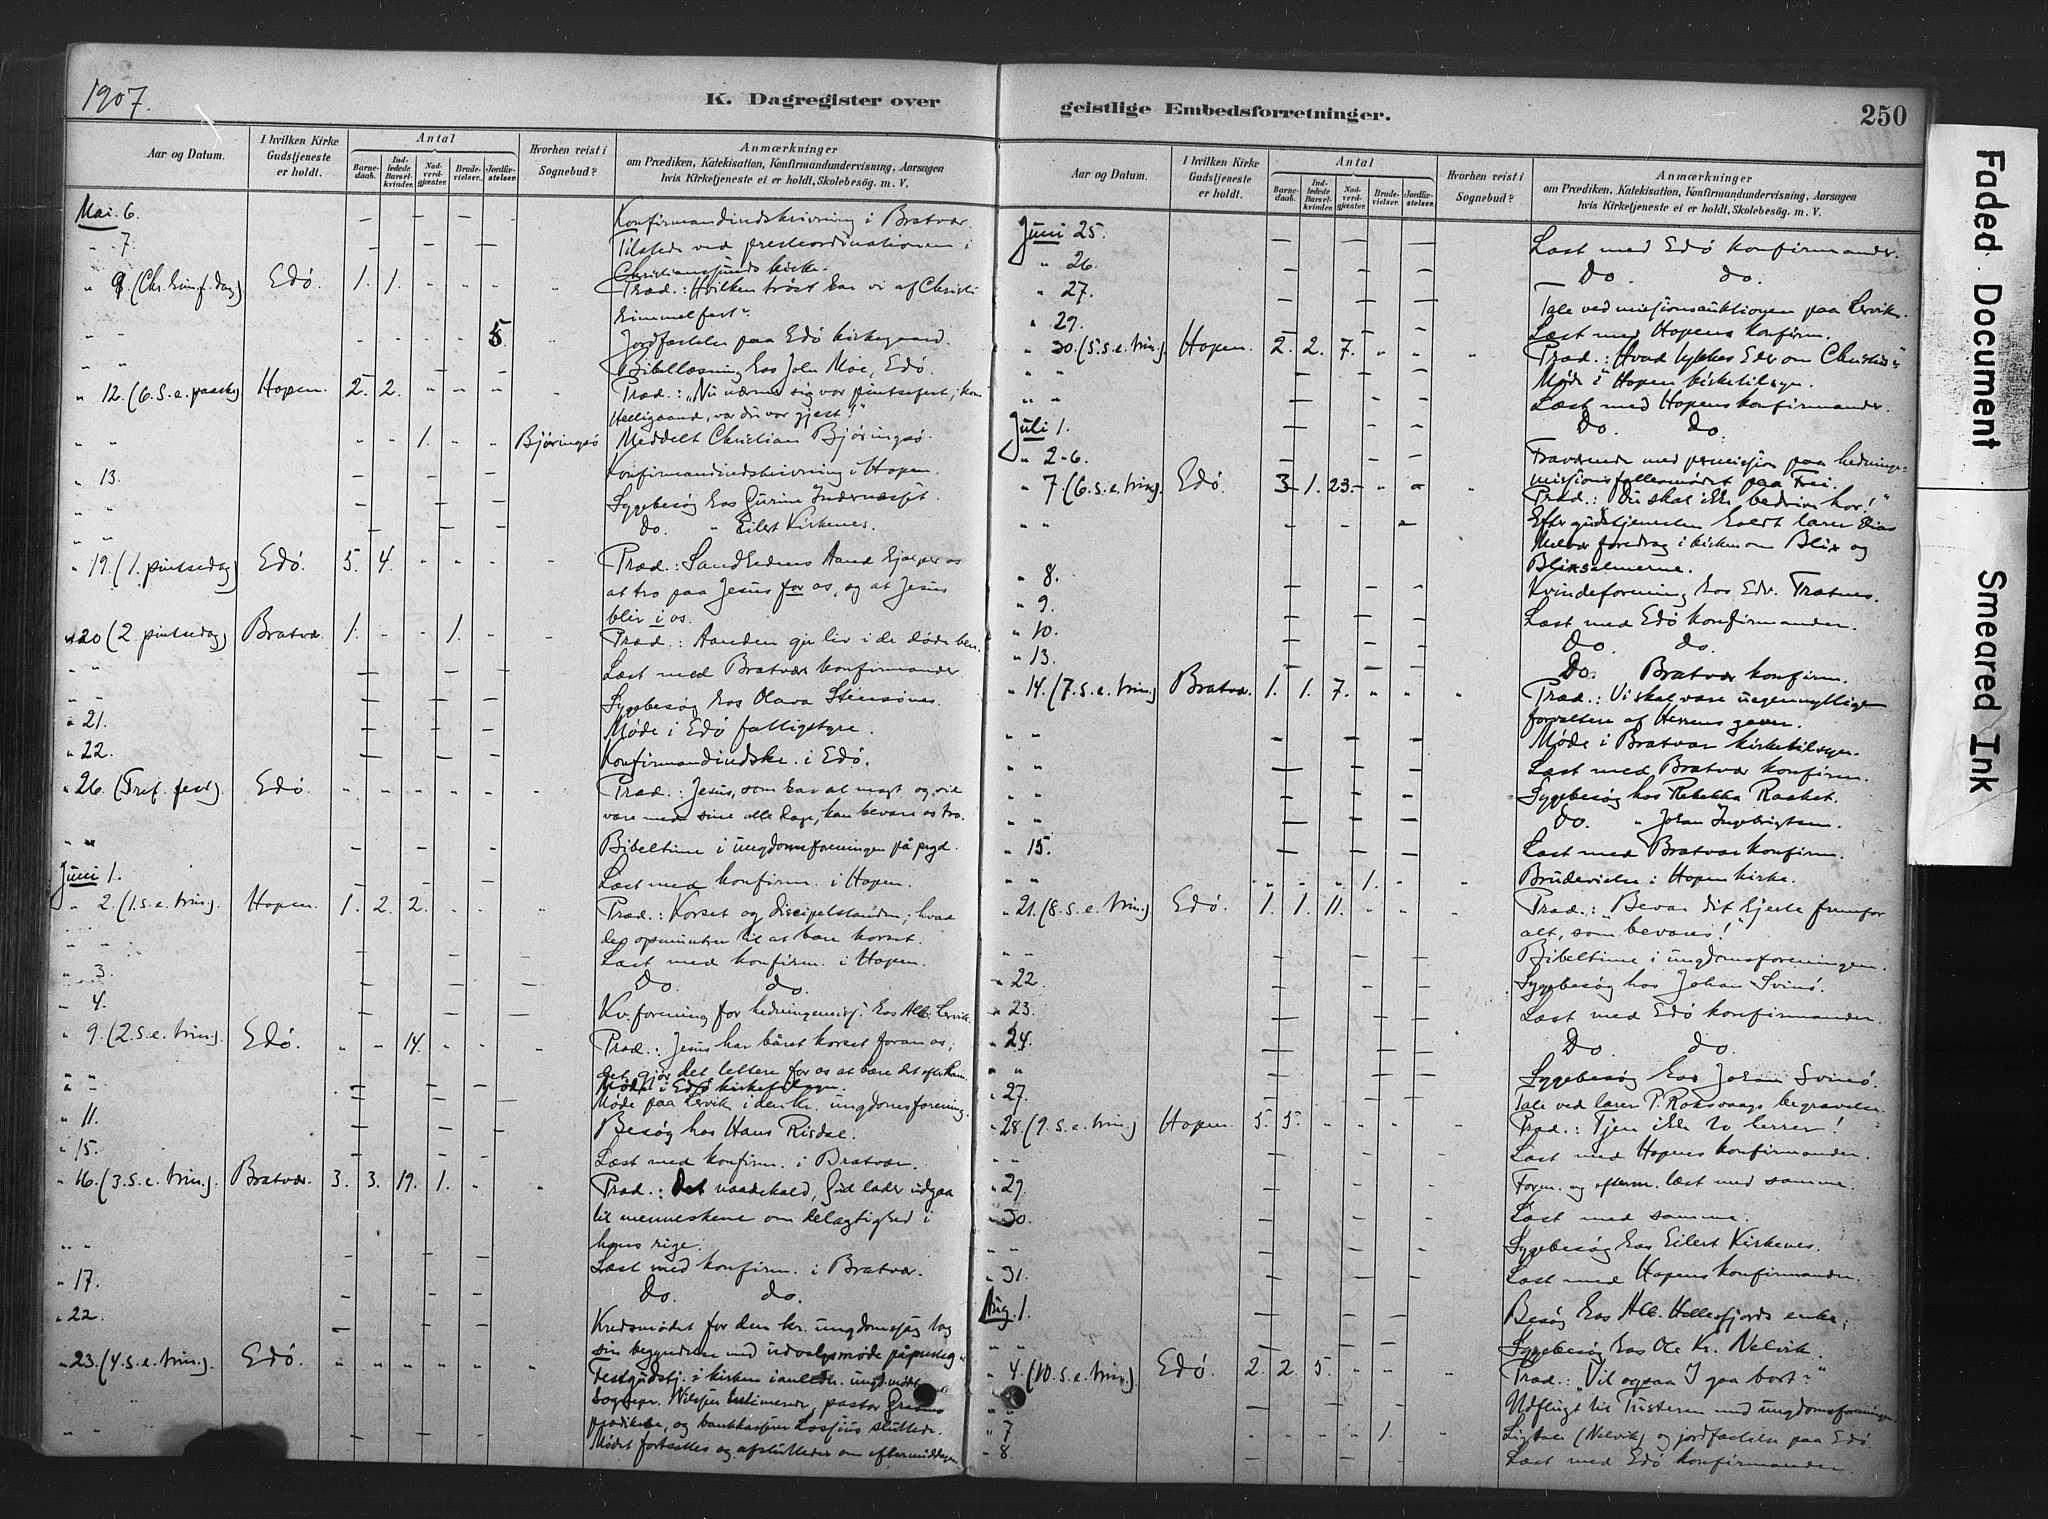 1907.
K. Dagregister over
Aar og Datum.
I hvilken Kirke Gudstjeneste er holdt.
Antal
Barnedaab.
Indledede Barselkvinder.
Nadverdgjæster.
Brudevielser.
Jordfæstelser.
Hvorhen reist i Sognebud?
Anmærkninger
om Prædiken, Katekisation, Konfirmandundervisning, Aarsagen
hvis Kirketjeneste ei er holdt, Skolebesøg. m. V.
Mai. 6. — — — — — Konfirmandindskrivning i Bratvær
" 7. — — — — — Tilstede ved presteordinationen i
Christiansunds kirke.
" 9. (Chr. himf. dag) Edö. 1. 1. " " " " Præd.: Hvilken trøst har vi af Christi
himmelfart".
" " " " " " 5. " Jordfæstelse paa Edö kirkegaard.
" " — — — — — Bibellæsning hos John Moe, Edö.
" 12. (6. S. e. paaske) Hopen. 2. 2. " " " " Præd.: "Nu nærme sig vor pintsefest; kom
Helligaand, vær du vor gjest!"
" " " " 1. " " Björingsö Meddelt Christian Björingsö.
" 13. — — — — — Konfirmandindskrivning i Hopen.
" " — — — — — Sygebesøg hos Gurine Indernæsset.
" " — — — — — Do. " Eilert Kirkenes.
" 19. (1. pintsedag) Edö. 5. 4. " " " " Præd.: Sandhedens Aand hjælper os
at tro paa Jesus for os, og at Jesus
blir i os.
" 20 (2. pintsedag) Bratvær 1. " " 1. " " Præd.: Aanden gir liv i de døde ben.
" " — — — — — Læst med Bratvær konfirmander
" " — — — — — Sygebesøg hos Olava Stensönes.
" 21. — — — — — Møde i Edö fattigstyre.
" 22. — — — — — Konfirmandindskr. i Edö.
" 26. (Tref. fest) Edö. " " " " " " Præd.: Jesus, som har al magt og vil
være med sine alle dage, kan bevare os tro.
" " — — — — — Bibeltime i ungdomsforeningen på prgd.
Juni 1. — — — — — Læst med konfirm. i Hopen.
" 2. (1. s. e. trin.) Hopen. 1. 2. 2. " " " Præd.: Korset og discipelstanden; hvad
der opmuntrer til at bære korset.
" " — — — — — Læst med konfirm. i Hopen.
" 3. — — — — — Do. do.
" 4. — — — — — Kv.forening for hedningemis. hos Alb. Lervik.
" 9. (2. s. e. trin.) Edö. " " 14. " " " Præd.: Jesus har båret korset foran os;
det gjør det lettere for os at bære det efter ham.
" " — — — — — Møde i Edö kirketilsyn.
" " — — — — — Møde paa Lervik i den kr. ungdomsforening.
" 11. — — — — — Besøg hos Hans Risdal.
" 15. — — — — — Læst med konfirm. i Bratvær.
" 16. (3. s. e. trin.). Bratvær. 3. 3. 19. 1. " " Præd.: Det naadekald, Gud lader udgaa
til menneskene om delagtighed i
hans rige.
" " — — — — — Læst med konfirm. i Bratvær.
" 17. — — — — — Do. do.
" 22. — — — — — Kredsmødet for den kr. ungdomssag tog
sin begyndelse med udvalgsmøde på prestg.
" 23. (4. s. e. trin.). Edö. " " " " " " Festgudstj. i kirken i anledn. ungd.mødet
Sogepr. Nilssen intimerede, pastor
prædikede, og bankkasserer Lossius sluttede.
" " — — — — — Mødet fortsattes og afsluttedes om eftermiddagen.
geistlige Embedsforretninger.
250
Aar og Datum.
I hvilken Kirke Gudstjeneste er holdt.
Antal
Barnedaab.
Indledede Barselkvinder.
Nadverdgjæster.
Brudevielser.
Jordfæstelser.
Hvorhen reist i Sognebud?
Anmærkninger
om Prædiken, Katekisation, Konfirmandundervisning, Aarsagen
hvis Kirketjeneste ei er holdt, Skolebesøg. m. V.
Juni 25. — — — — — Læst med Edö konfirmander.
" 26. — — — — — Do. do.
" 27. — — — — — Tale ved missionsauktionen paa Lervik.
" 29. — — — — — Læst med Hopens konfirm.
" 30. (5. s. e. trin.). Hopen. 2. 2. 7. " " " Præd.: Hvad tykkes Eder om Christus"
" " — — — — — Møde i Hopen kirketilsyn.
" " — — — — — Læst med Hopens konfirmander.
Juli 1. — — — — — Do. do.
" 2-6. — — — — — Fraværende med permission paa hedninge-
missionsfællesmødet paa Frei.
" 7. (6. s. e. trin.). Edö. 3 1. 23. " " " Præd.: "Du skal ikke bedrive hor!"
" " — — — — — Efter gudstjenesten holdt lærer Elias
Melvær foredrag i kirken om Blix og
Blixsalmerne.
" 8. — — — — — Kvindeforening hos Edv. Trætnes.
" 9. — — — — — Læst med Edö konfirmander.
" 10. — — — — — Do. do.
" 13. — — — — — Do. Bratvær konfirm.
" 14. (7. s. e. trin.) Bratvær. 1. 1. 7. " " " Præd.: Vi skal være uegennyttige
forvaltere af Herrens gaver.
" " — — — — — Møde i Bratvær kirketilsyn.
" " — — — — — Læst med Bratvær konfirm.
" " — — — — — Sygebesøg hos Rebekka Rasket.
" " — — — — — Do. " Johan Ingebrigtsen.
" 15. — — — — — Læst med Bratvær konfirm.
" " " " " 1. " " Brudevielse i Hopen kirke.
" 21. (8. s. e. trin.) Edö. 1. 1. 11. " " " Præd.: "Bevar dit hjerte fremfor
alt, som bevares!"
" " — — — — — Bibeltime i ungdomsforeningen.
" 22. — — — — — Sygebesøg hos Johan Svinö.
" 23. — — — — — Læst med Edö konfirmander.
" 24. — — — — — Do. do.
" " — — — — — Sygebesøg hos Johan Svinö.
" 27. — — — — — Tale ved lærer P. Roksvaags begravelse.
" 28. (9. s. e. trin.) Hopen. 5. 5. " " " " Præd.: Tjen ikke to herrer!
" " — — — — — Læst med Hopens konfirmander.
" 29. — — — — — Form. og efterm. læst med samme.
" 30. — — — — — Læst med samme.
" " — — — — — Sygebesøg hos Eilert Kirkenes.
" 31. — — — — — Læst med Hopens konfirmander.
Aug. 1. — — — — — Besøg hos Alb. Hellesfjords enke;
" " — — — — — Sygebesøg hos Ole Kr. Nelvik.
" 4. (10. s. e. trin.). Edö. 2. 2. 5. " " " Præd.: "Vil ogsaa I gaa bort"
" " — — — — — Udflugt til Tusteren med ungdomsforeningen
" 7 " " " " 1. " Ligtale (Nelvik) og jordfæstelse paa Edö.
" 8. — — — — — Læst med Edö konfirmander.
Faded Document
Smeared Ink